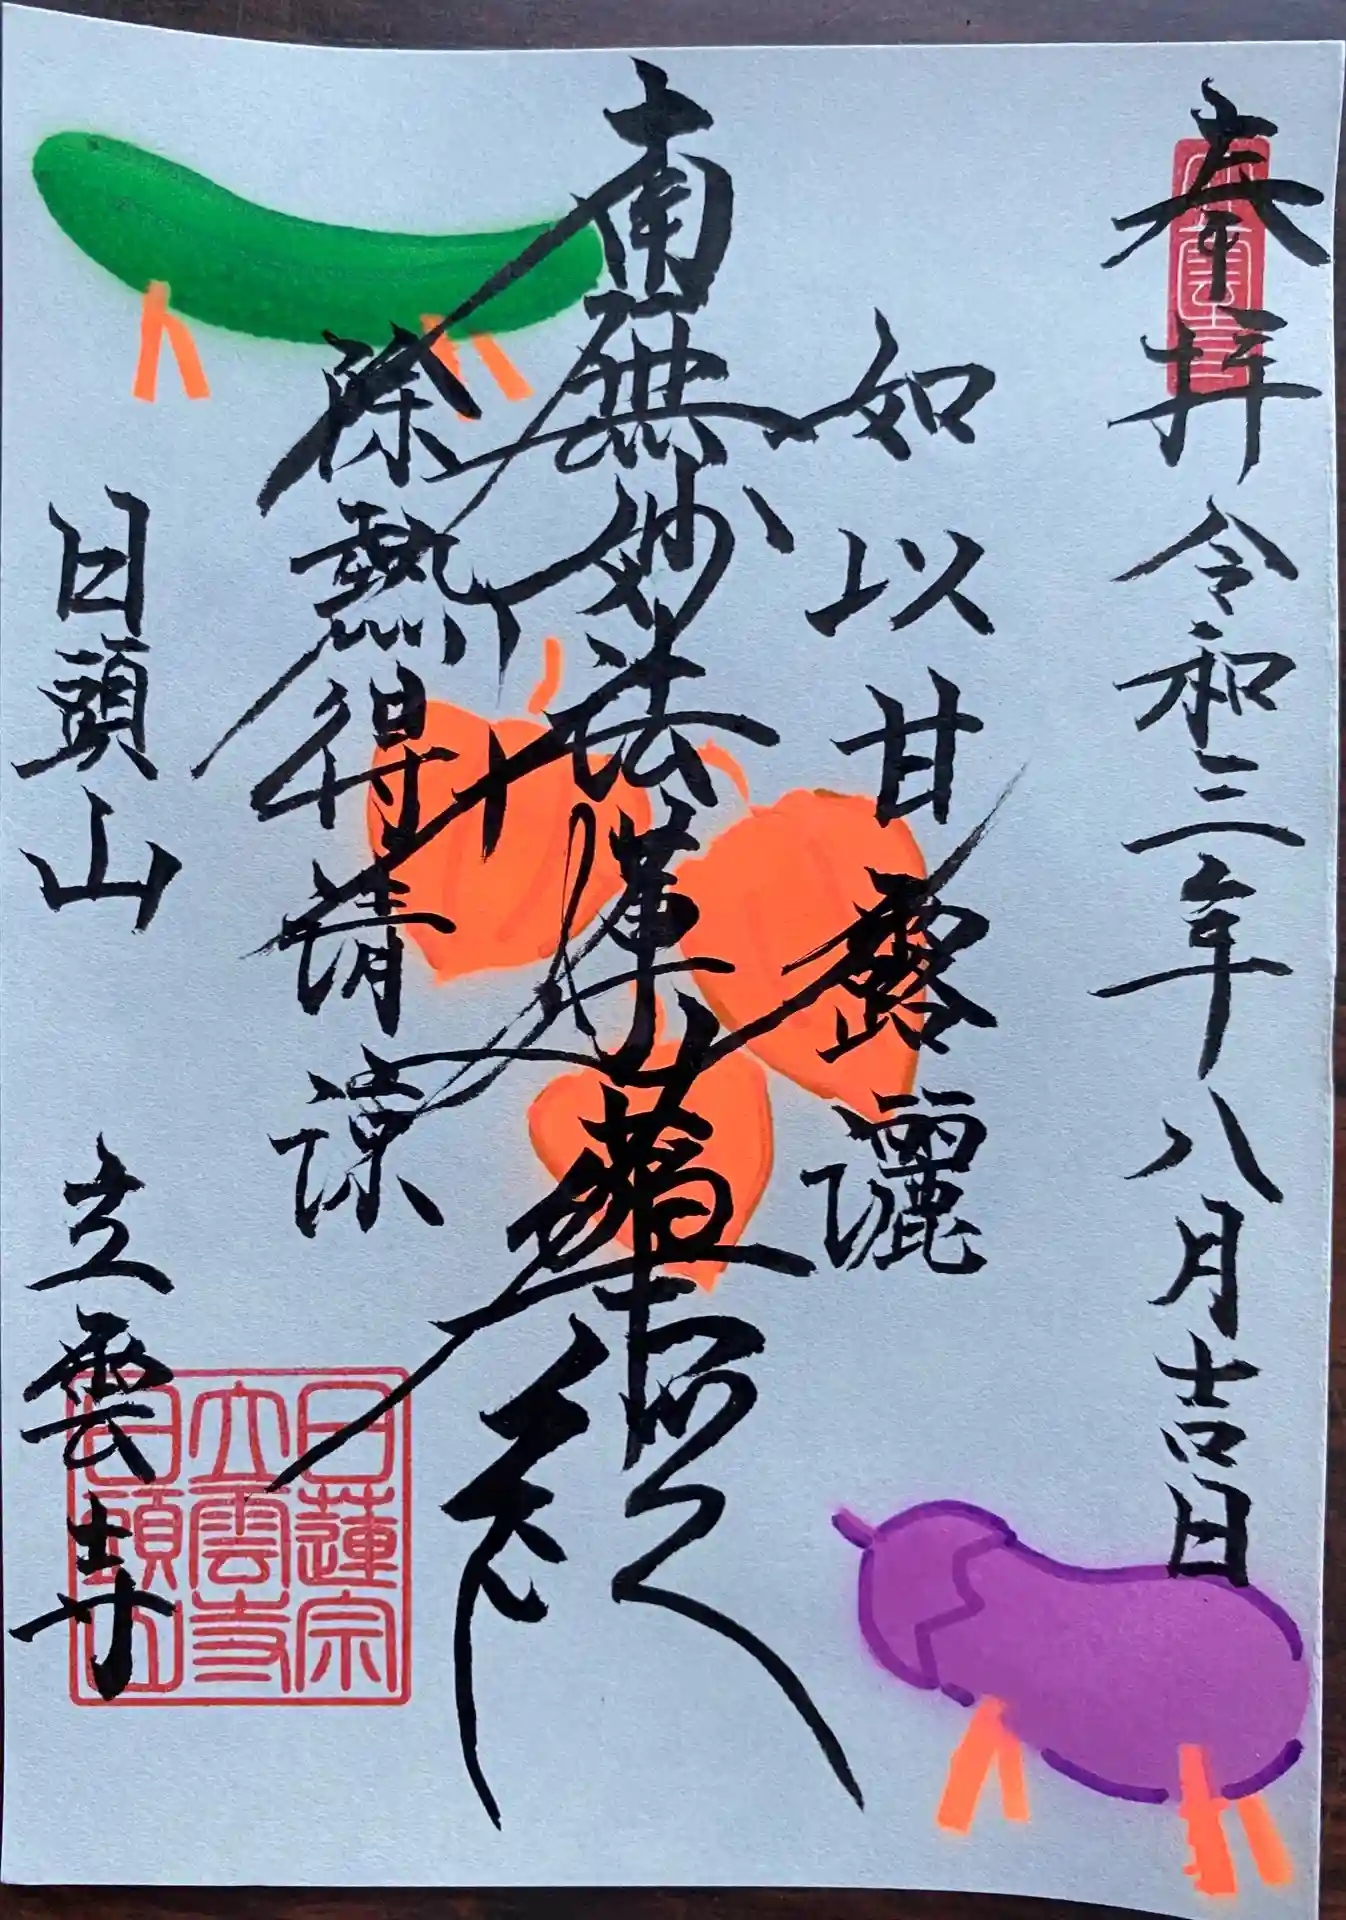 奉拝 令和三年八月吉日
如以甘露灑
南無妙法蓮華経
除熱得清涼
日頭山 立雲寺
立雲寺
日蓮宗
立雲寺
日頭山